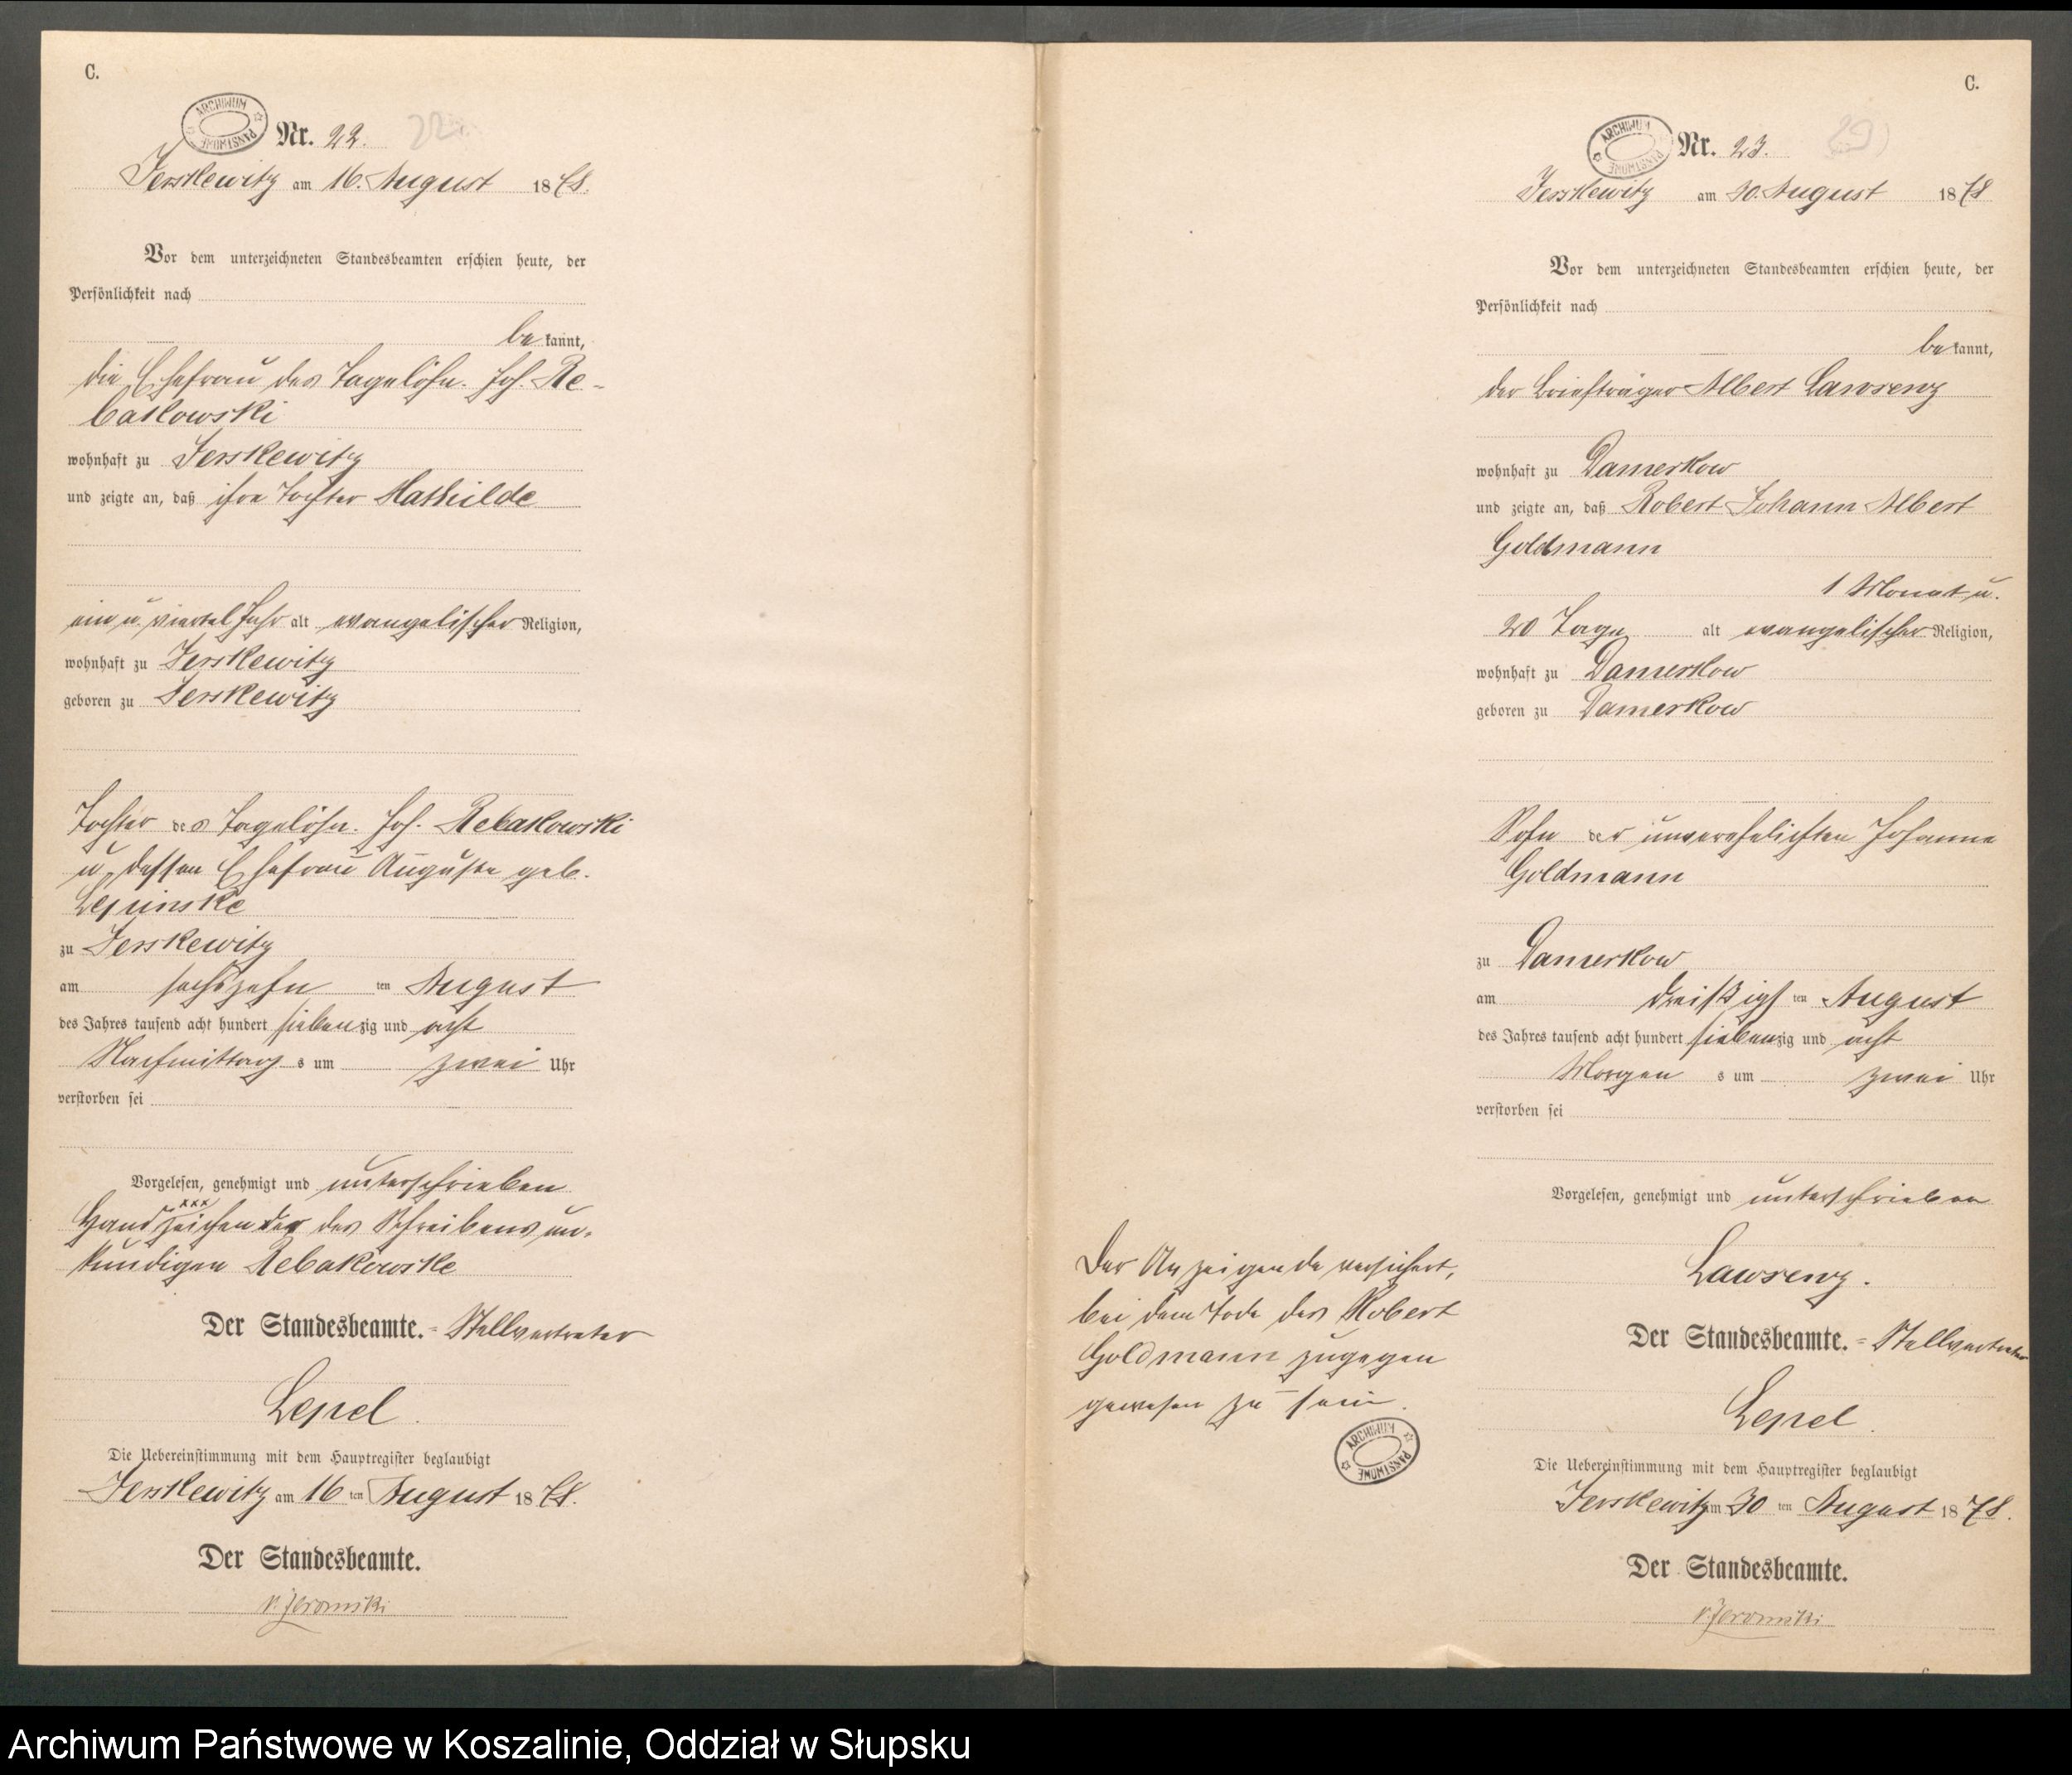 C.
ARCHIWUM PAŃSTWOWE
Nr. 22. 22
Jerskewitz am 16. August 1878.
Vor dem unterzeichneten Standesbeamten erschien heute, der
Persönlichkeit nach
bekannt,
die Ehefrau des Tagelöhn. Joh. Re-
bakowski
wohnhaft zu Jerskewitz
und zeigte an, daß ihre Tochter Mathilde
ein u. viertel Jahr alt evangelischer Religion,
wohnhaft zu Jerskewitz
geboren zu Jerskewitz
Tochter des Tagelöhn. Joh. Rebakowski
u. dessen Ehefrau Auguste geb.
Lepinske
zu Jerskewitz
am sechszehn ten August
des Jahres tausend acht hundert siebenzig und acht
Nachmittags um zwei Uhr
verstorben sei
Vorgelesen, genehmigt und unterschrieben
xxx
Handzeichen der des Schreibens un-
kundigen Rebakowske
Der Standesbeamte. = Stellvertreter
Lepel.
Die Uebereinstimmung mit dem Hauptregister beglaubigt
Jerskewitz am 16 ten August 1878.
Der Standesbeamte.
v. Jeromski
C.
ARCHIWUM PAŃSTWOWE
Nr. 23. 23
Jerskewitz am 30. August 1878
Vor dem unterzeichneten Standesbeamten erschien heute, der
Persönlichkeit nach
bekannt,
der Briefträger Albert Lawrenz
wohnhaft zu Damerkow
und zeigte an, daß Robert Johann Albert
Goldmann
1 Monat u.
20 Tage alt evangelischer Religion,
wohnhaft zu Damerkow
geboren zu Damerkow
Sohn der unverehelichten Johanne
Goldmann
zu Damerkow
am dreißigsten August
des Jahres tausend acht hundert siebenzig und acht
Morgens um zwei Uhr
verstorben sei
Vorgelesen, genehmigt und unterschrieben
Lawrenz.
Der Anzeigende versichert,
bei dem Tode des Robert
Goldmann zugegen
gewesen zu sein.
ARCHIWUM PAŃSTWOWE
Der Standesbeamte. = Stellvertreter
Lepel.
Die Uebereinstimmung mit dem Hauptregister beglaubigt
Jerskewitz am 30 ten August 1878.
Der Standesbeamte.
v. Jeromski
Archiwum Państwowe w Koszalinie, Oddział w Słupsku